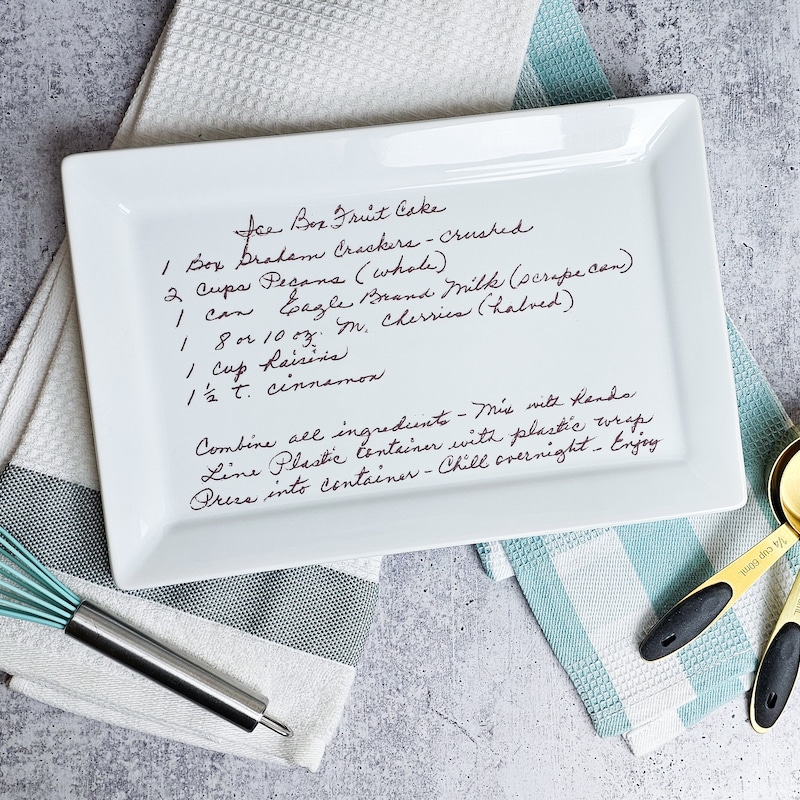 Ice Box Fruit Cake
1 Box Graham Crackers - crushed
2 cups Pecans (whole)
1 can Eagle Brand Milk (scrape can)
1 8 or 10 oz. M. Cherries (halved)
1 cup Raisins
1 1/2 t. cinnamon
Combine all ingredients - Mix with hands
Line Plastic Container with plastic wrap
Press into container - Chill overnight - Enjoy
1/4 cup 60mL